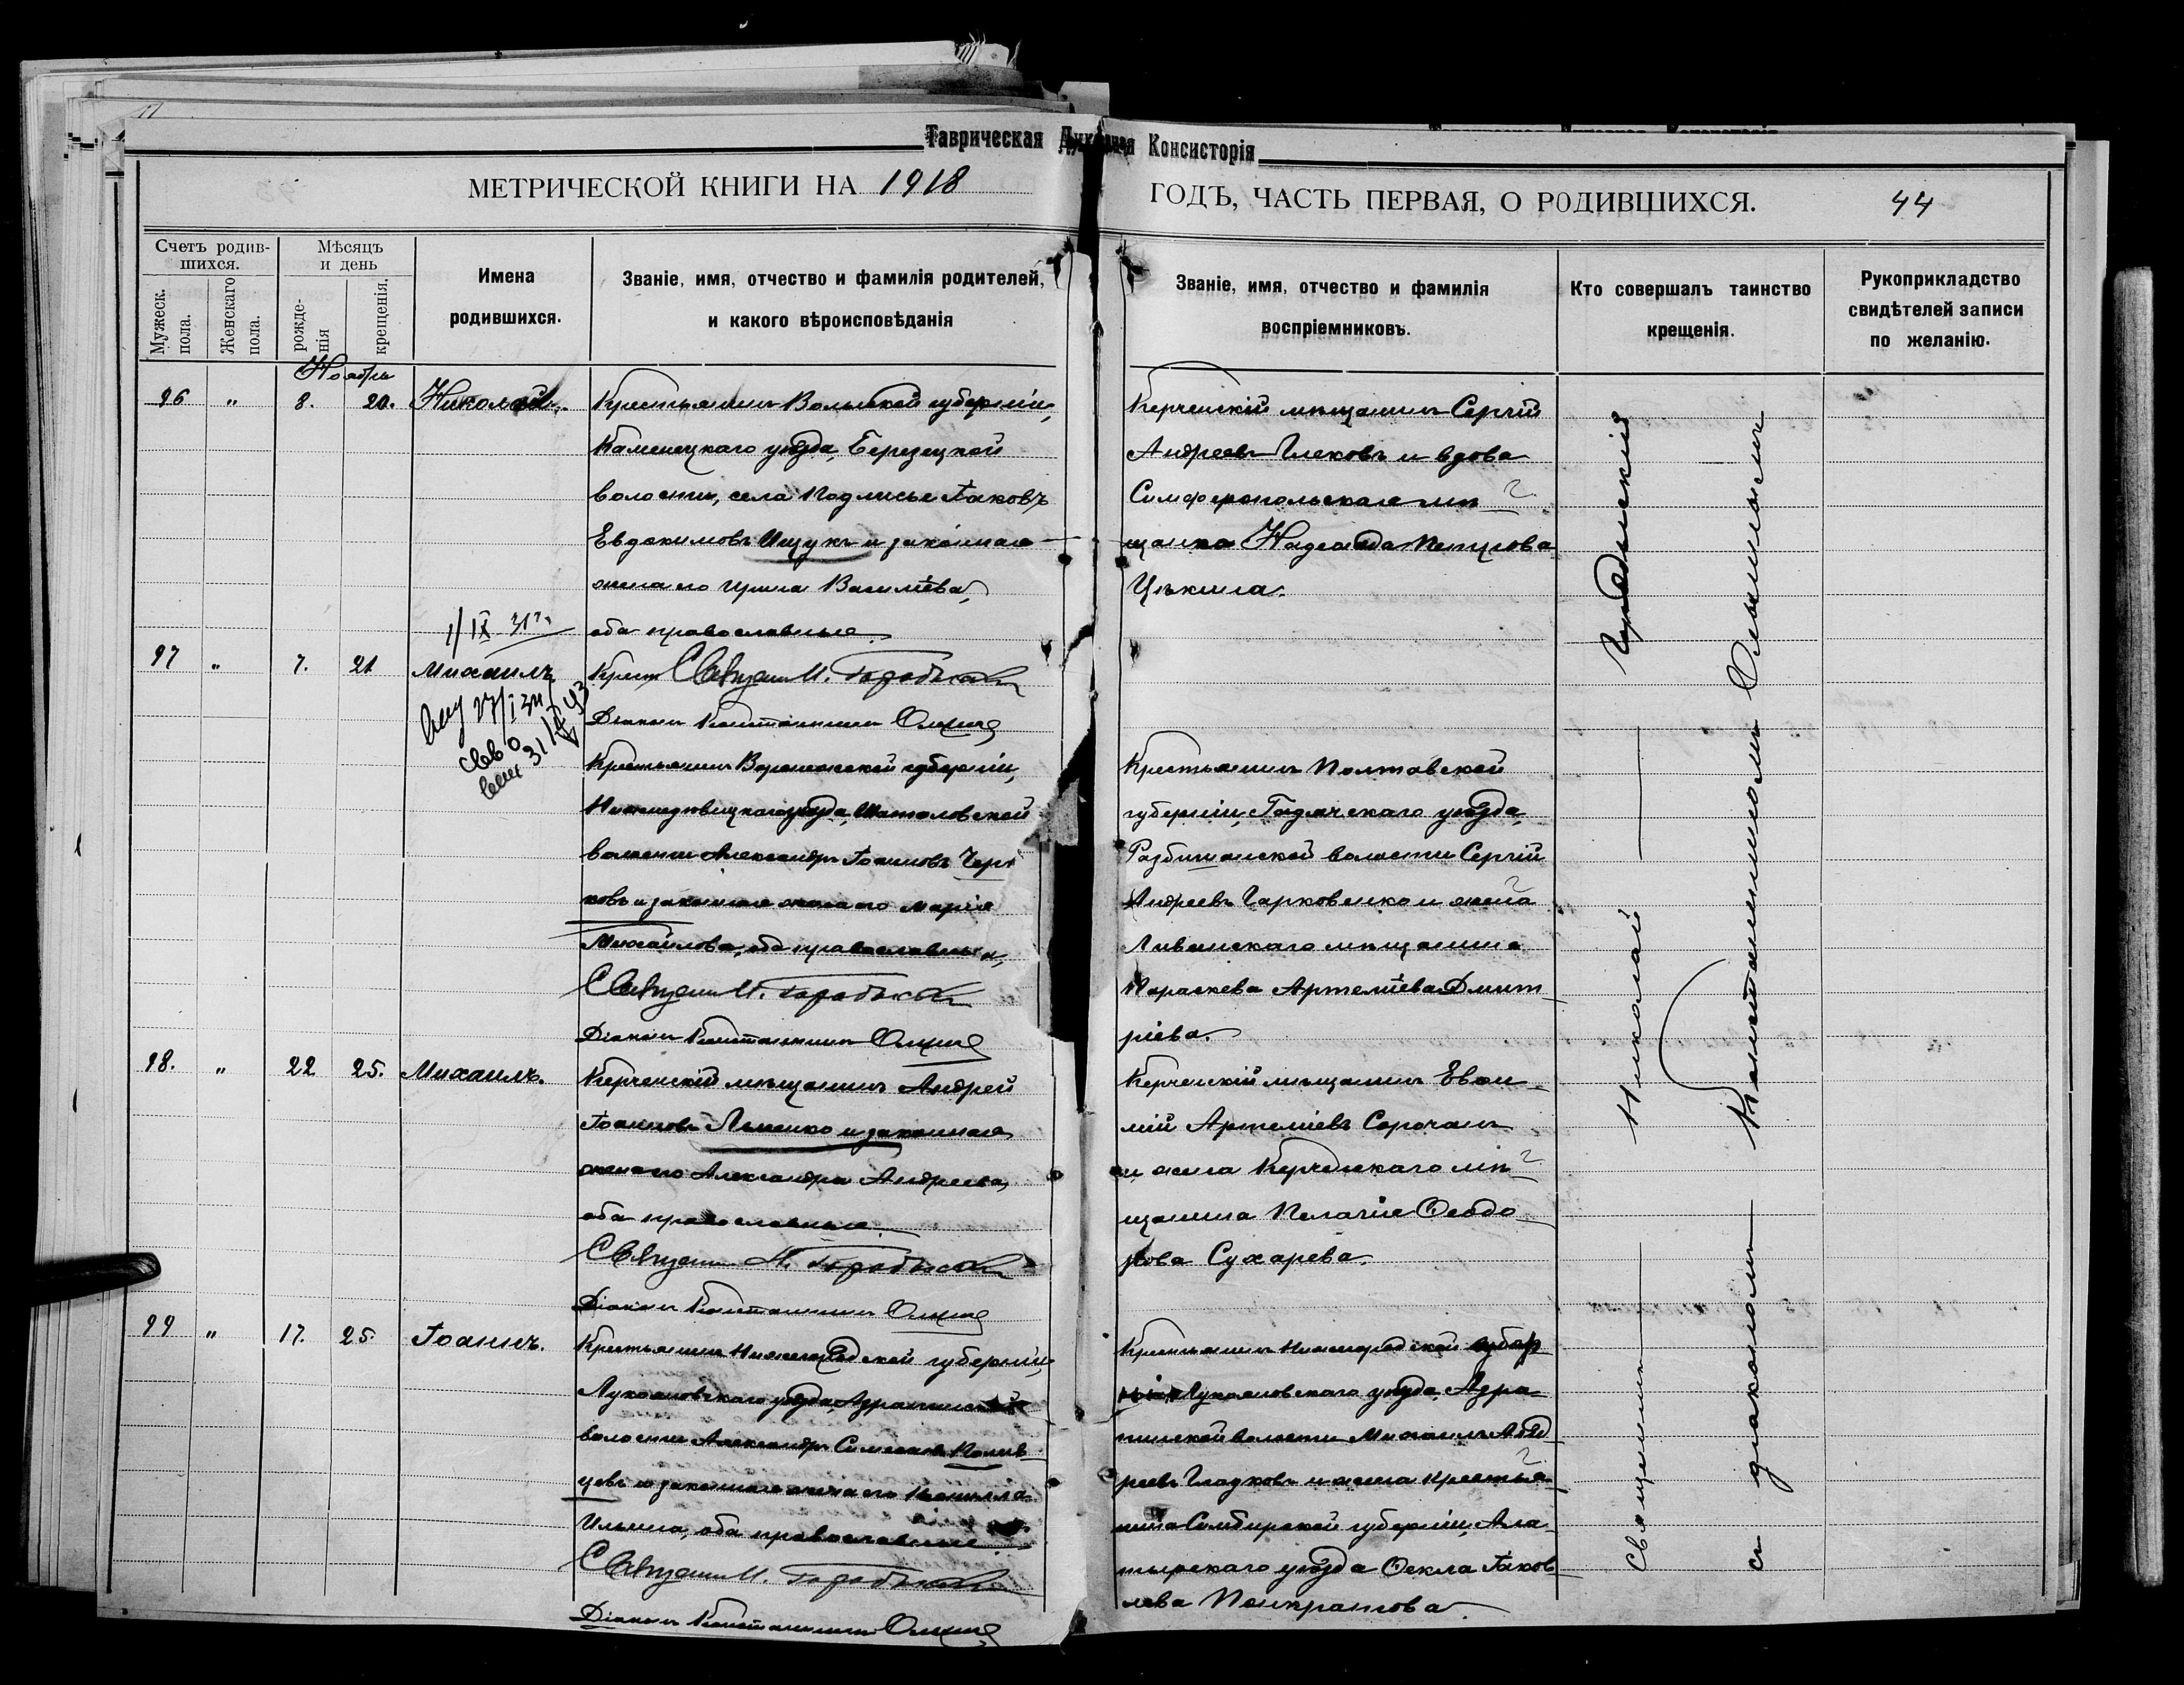 Таврическая Духовная Консисторія
МЕТРИЧЕСКОЙ КНИГИ НА 1918 ГОДЪ, ЧАСТЬ ПЕРВАЯ, О РОДИВШИХСЯ. 44
Счетъ родив-
шихся.
Мужеск.
пола.
Женскаго
пола.
Мѣсяцъ
и день
рожде-
нія
крещенія.
Имена
родившихся.
Званіе, имя, отчество и фамилія родителей,
и какого вѣроисповѣданія
Званіе, имя, отчество и фамилія
воспріемниковъ.
Кто совершалъ таинство
крещенія.
Рукоприкладство
свидѣтелей записи
по желанію.
Ноябрь
96 " 8. 20. Николай.
Крестьянинъ Волынской губерніи,
Каменецкаго уѣзда, Березецкой
волости, села Подлисье Іаковъ
Евдокимовъ Ищукъ и законная
жена его Ирина Василіева,
оба православные.
Керченскій мѣщанинъ Сергій
Андреевъ и вдова
Симферопольская мѣ-
щанка Надежда Петрова
1/IX 31 г.
97 " 7. 21 Михаилъ
Крест Священ Н. Городыскій
Діаконъ Константинъ
Крестьянинъ Воронежской губерніи,
Нижнедѣвицкаго уѣзда, Шаталовской
волости Александръ Іоанновъ Черт
ковъ и законная жена его Марія
Михайлова, оба православные,
Священ Н. Городыскій
Діаконъ Константинъ
Крестьянинъ Полтавской
губерніи, Гадячскаго уѣзда,
Разбишанской волости Сергій
Андреевъ Гарковенко и жена
Ливенскаго мѣщанина
Параскева Артеміева Дмит-
ріева.
98. " 22 25. Михаилъ.
Керченскій мѣщанинъ Андрей
Іоанновъ Льменко и законная
жена его Александра Андреева,
оба православные.
Священ Н. Городыскій
Діаконъ Константинъ
Керченскій мѣщанинъ
Артеміевъ Сорочанъ
и жена Керченскаго мѣ-
щанина Пелагія Ѳеодо-
рова Сухарева.
99 " 17. 25. Іоаннъ.
Крестьянинъ Нижегородской губерніи,
Лукояновскаго уѣзда,
волости Александръ Симеоновъ
цевъ и законная жена его
Ильина, оба православные.
Священ Н. Городыскій
Діаконъ Константинъ
Крестьянинъ Нижегородской губер
ніи Лукояновскаго уѣзда,
волости Михаилъ Анд
реевъ Гладковъ и жена крестья-
нина Симбирской губерніи, Ала-
тырскаго уѣзда Ѳекла Іаков
лева Панкратова.
Священникъ Николай
съ діакономъ Константиномъ